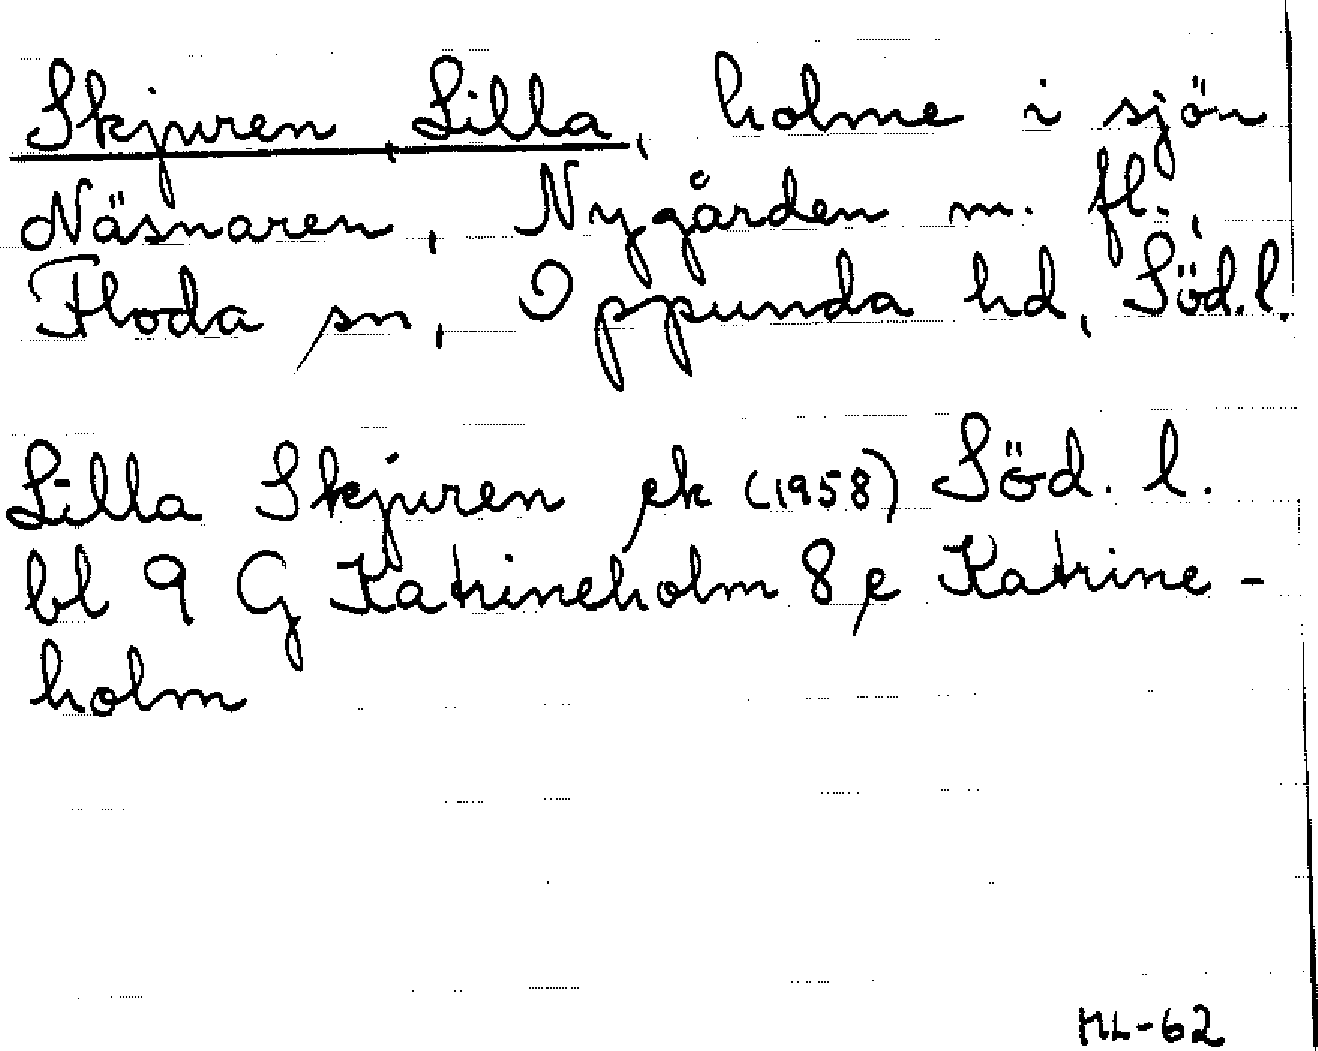 Skjuren, Lilla, holme i sjön
Näsnaren, Nygården m. fl.,
Floda sn, Oppunda hd, Söd.l.
Lilla Skjuren ek (1958) Söd. l.
bl 9 G Katrineholm 8 e Katrine-
holm
ML-62